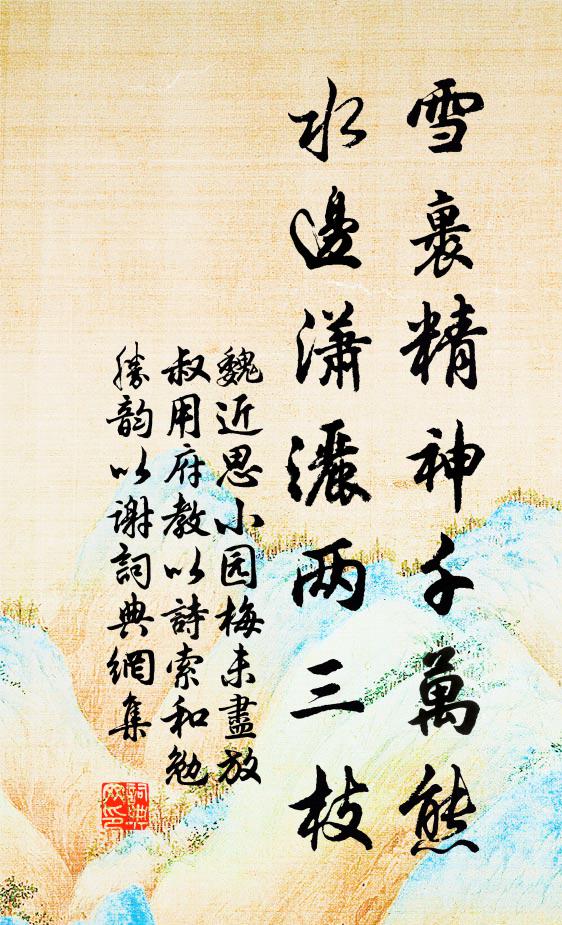 雪裏精神千萬態
水邊瀟灑两三枝
魏近思小园梅未盡放
叔用府教以詩索和勉
勝韵以谢詞典網集